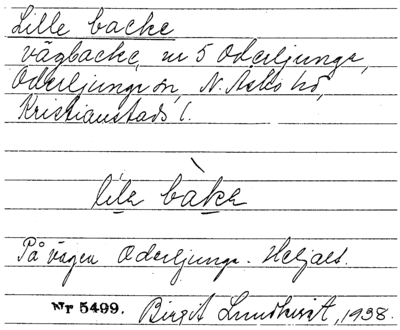 Lille backe
vägbacke, nr 5 Oderljunga,
Oderljunga sn, N. Åsbo hd,
Kristianstads l.
lila bàka
På vägen Oderljunga - Heljals.
Nr 5499. Birgit Lundkvist, 1938.